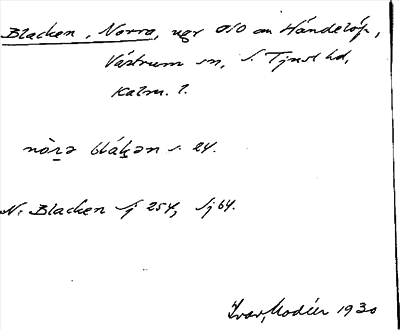 Blacken, Norra, ugr OSO om Händelöp,
Västrum sn, S. Tjust hd,
Kalm. l.
nòrə blákən s. 24.
N. Blacken fj 254, Sj 64.
Ivar Modéer 1930